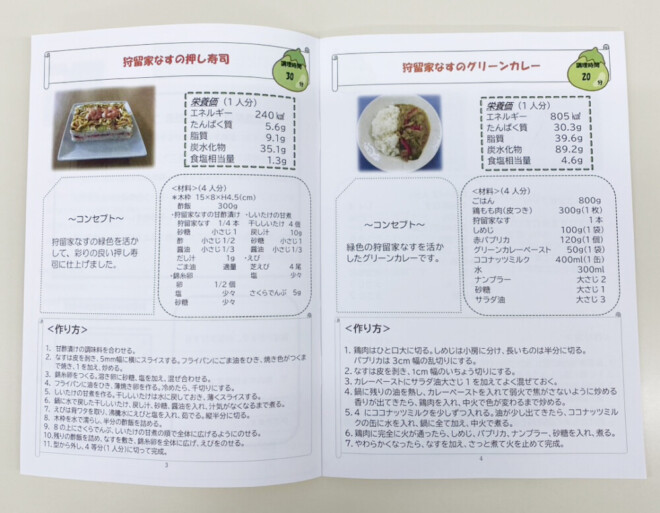 狩留家なすの押し寿司
調理時間
30
分
栄養価(1人分)
エネルギー 240㎉
たんぱく質 5.6g
脂質 9.1g
炭水化物 35.1g
食塩相当量 1.3g
~コンセプト~
狩留家なすの緑色を活か
して、彩りの良い押し寿
司に仕上げました。
<材料>(4人分)
*木枠 15×8×H4.5(cm)
酢飯 300g
・狩留家なすの甘酢漬け
狩留家なす 1/4本
砂糖 小さじ1
酢 小さじ1/2
醤油 小さじ1/3
だし汁 1g
ごま油 適量
・錦糸卵
卵 1/2個
塩 少々
・しいたけの甘煮
干ししいたけ 4個
戻し汁 10g
砂糖 小さじ1
醤油 小さじ1/3
・えび
芝えび 4尾
塩 少々
さくらでんぶ 5g
<作り方>
1. 甘酢漬けの調味料を合わせる。
2. なすは皮を剥き、5mm幅に横にスライスする。フライパンにごま油をひき、焼き色がつくま
で焼き、1を加え、炒める。
3. 錦糸卵をつくる。溶き卵に砂糖、塩を加え、混ぜ合わせる。
4. フライパンに油をひき、薄焼き卵を作る。冷めたら、千切りにする。
5. しいたけの甘煮を作る。干ししいたけは水に戻しておき、薄くスライスする。
6. 鍋に水で戻した干ししいたけ、戻し汁、砂糖、醤油を入れ、汁気がなくなるまで煮る。
7. えびは背ワタを取り、沸騰水にえびと塩を入れ、茹でる。縦半分に切る。
8. 木枠を水で濡らし、半分の酢飯を詰める。
9. 8の上にさくらでんぶ、しいたけの甘煮の順で全体に広げるようにのせる。
10.残りの酢飯を詰め、なすを敷き、錦糸卵を全体に広げ、えびをのせる。
11. 型から外し、4等分(1人分)に切って完成。
3
狩留家なすのグリーンカレー
調理時間
20
分
栄養価(1人分)
エネルギー 805㎉
たんぱく質 30.3g
脂質 39.6g
炭水化物 89.2g
食塩相当量 4.6g
~コンセプト~
緑色の狩留家なすを活か
したグリーンカレーです。
<材料>(4人分)
ごはん 800g
鶏もも肉(皮つき) 300g(1枚)
狩留家なす 1本
しめじ 100g(1袋)
赤パプリカ 120g(1個)
グリーンカレーペースト 50g(1袋)
ココナッツミルク 400ml(1缶)
水 300ml
ナンプラー 大さじ2
砂糖 大さじ1
サラダ油 大さじ3
<作り方>
1. 鶏肉はひと口大に切る。しめじは小房に分け、長いものは半分に切る。
パプリカは3cm幅の乱切りにする。
2. なすは皮を剥き、1cm幅のいちょう切りにする。
3. カレーペーストにサラダ油大さじ1を加えてよく混ぜておく。
4. 鍋に残りの油を熱し、カレーペーストを入れて弱火で焦がさないように炒める
香りが出てきたら、鶏肉を入れ、中火で色が変わるまで炒める。
5. 4 にココナッツミルクを少しずつ入れる。油が少し出てきたら、ココナッツミル
クの缶に水を入れ、鍋に全て加え、中火で煮る。
6. 鶏肉に完全に火が通ったら、しめじ、パプリカ、ナンプラー、砂糖を入れ、煮る。
7. やわらかくなったら、なすを加え、さっと煮て火を止めて完成。
4